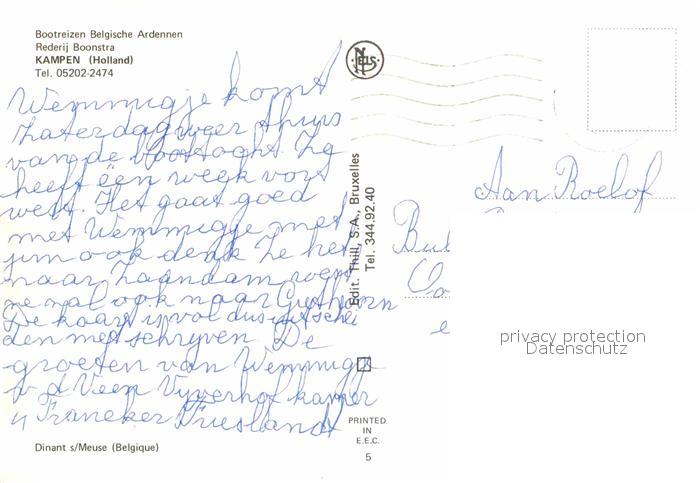 Bootreizen Belgische Ardennen
Rederij Boonstra
KAMPEN (Holland)
Tel. 05202-2474
NELS
Wemmigje komt
Zaterdag weer thuis
van de boottocht. Ze
heeft een week
west. Het gaat goed
met Wemmigje met
jim ook denk Ze
naar Zaandam
ze mal ook naar Giethoorn
De kaart is vol dus
den met schrijven De
groeten van Wemmigje
v d Veen Vijverhof kamer
4 Franeker Friesland
Dinant s/Meuse (Belgique)
Edit. Thill, S.A., Bruxelles
Tel. 344.92.40
PRINTED
IN
E.E.C.
5
Aan Roelof
privacy protection
Datenschutz